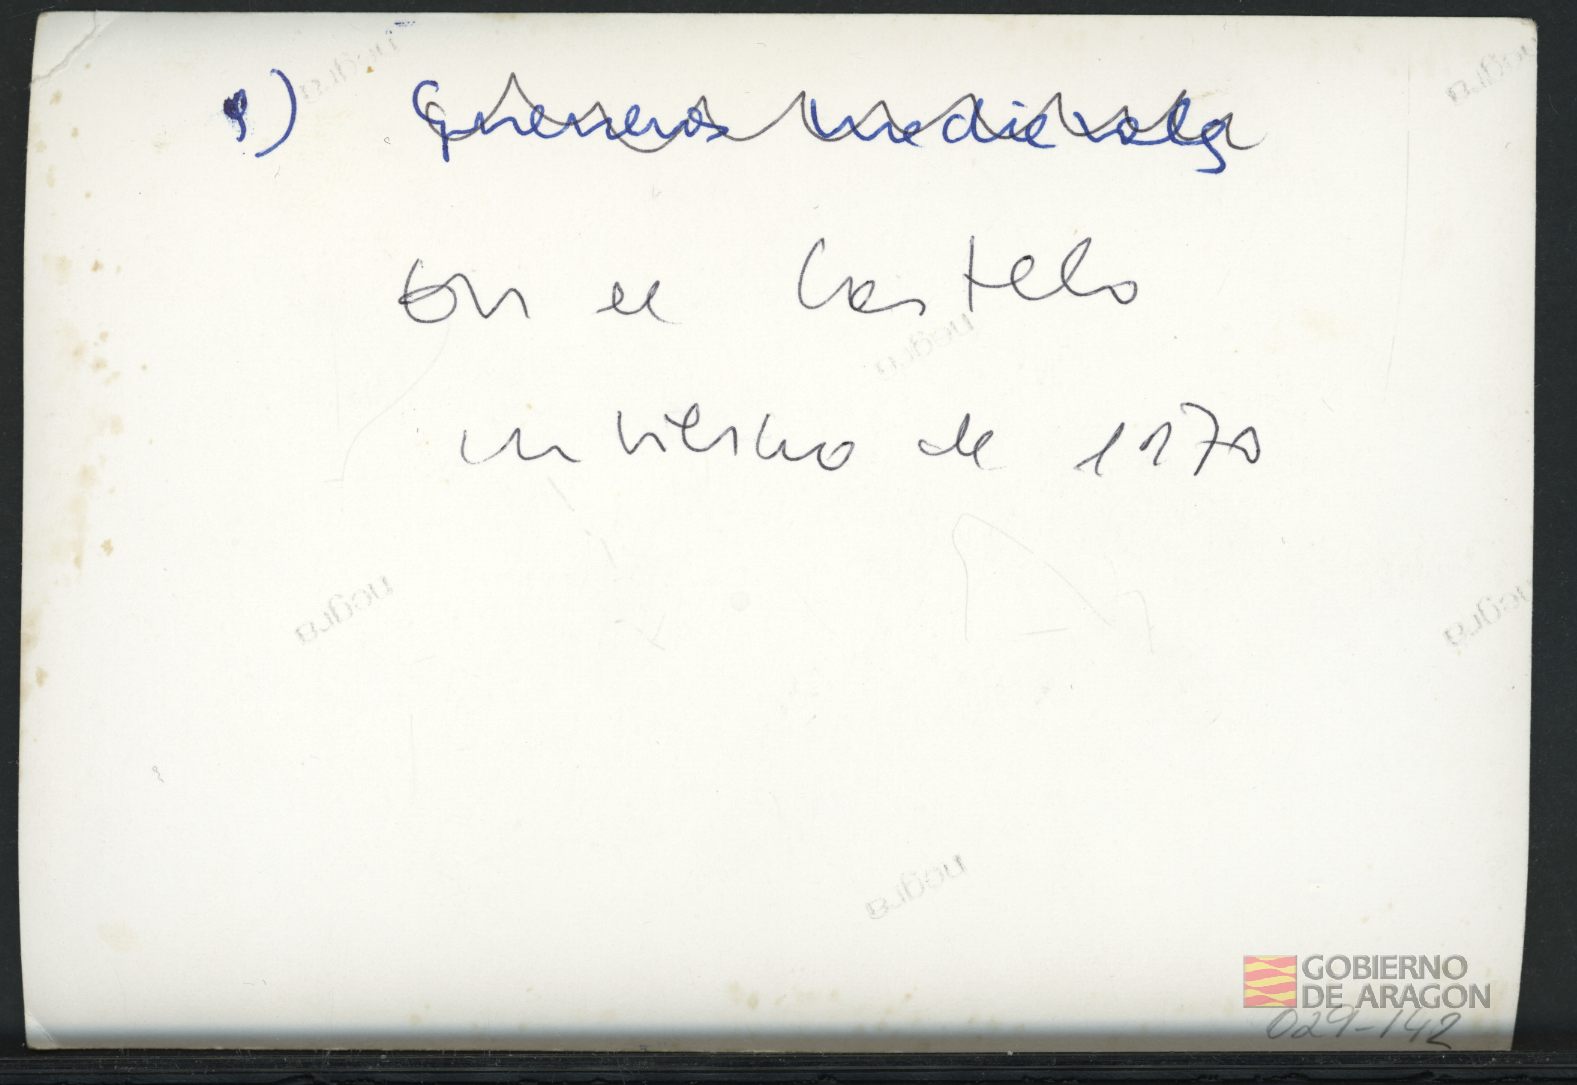 9) Guerreros medievales
En el Castelo
invierno de 1170
negra
negra
negra
negra
negra
negra
GOBIERNO
DE ARAGON
029-142